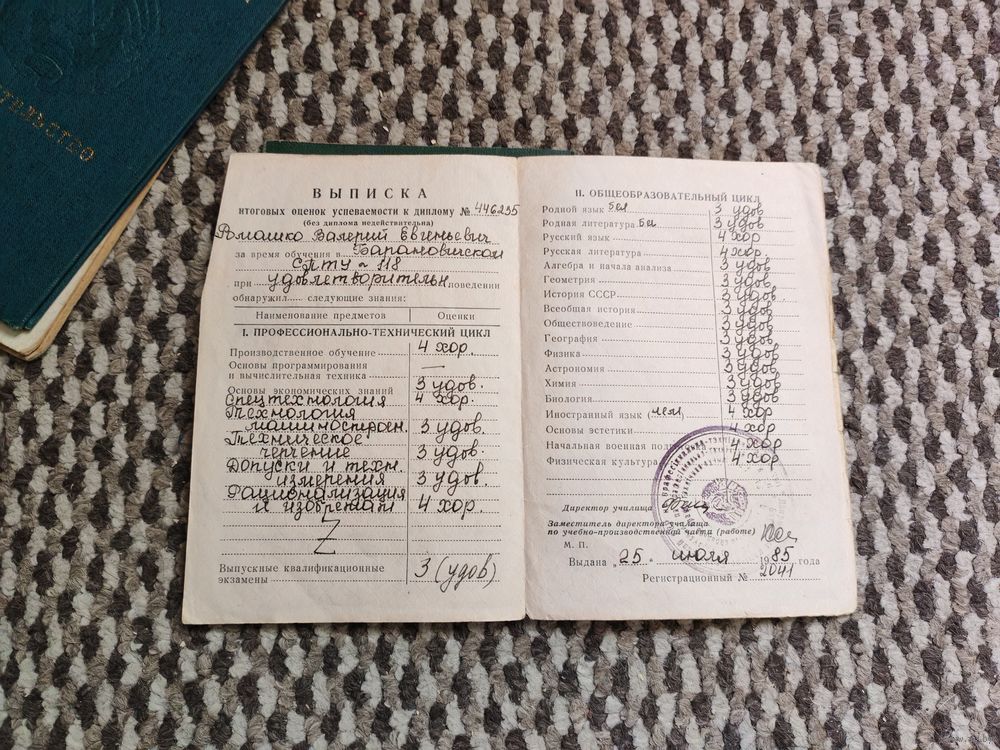 ТЕЛЬСТВО
ВЫПИСКА
итоговых оценок успеваемости к диплому № 446235
(без диплома недействительна)
Ромашко Валерий Евгеньевич
за время обучения в Барановичском
СПТУ № 118
при удовлетворительн поведении
обнаружил следующие знания:
Наименование предметов Оценки
I. ПРОФЕССИОНАЛЬНО-ТЕХНИЧЕСКИЙ ЦИКЛ
Производственное обучение 4 хор.
Основы программирования
и вычислительная техника —
Основы экономических знаний 3 удов.
Спецтехнология 4 хор.
Технология
машиностроен. 3 удов.
Техническое
черчение 3 удов.
Допуски и техн.
измерения 3 удов.
Рационализация
и изобретат 4 хор.
Z
Выпускные квалификационные
экзамены 3 (удов)
II. ОБЩЕОБРАЗОВАТЕЛЬНЫЙ ЦИКЛ
Родной язык бел 3 удов
Родная литература бел 3 удов
Русский язык 4 хор
Русская литература 4 хор.
Алгебра и начала анализа 3 удов
Геометрия 3 удов
История СССР 3 удов.
Всеобщая история 3 удов
Обществоведение 3 удов
География 3 удов
Физика 3 удов
Астрономия 3 удов
Химия 3 удов
Биология 3 удов
Иностранный язык (нем) 4 хор
Основы эстетики 4 хор
Начальная военная под 4 хор
Физическая культура 4 хор
Директор училища
Заместитель директора училища
по учебно-производственной части (работе)
М. П.
Выдана „25" июля 1985 года
Регистрационный № 2041